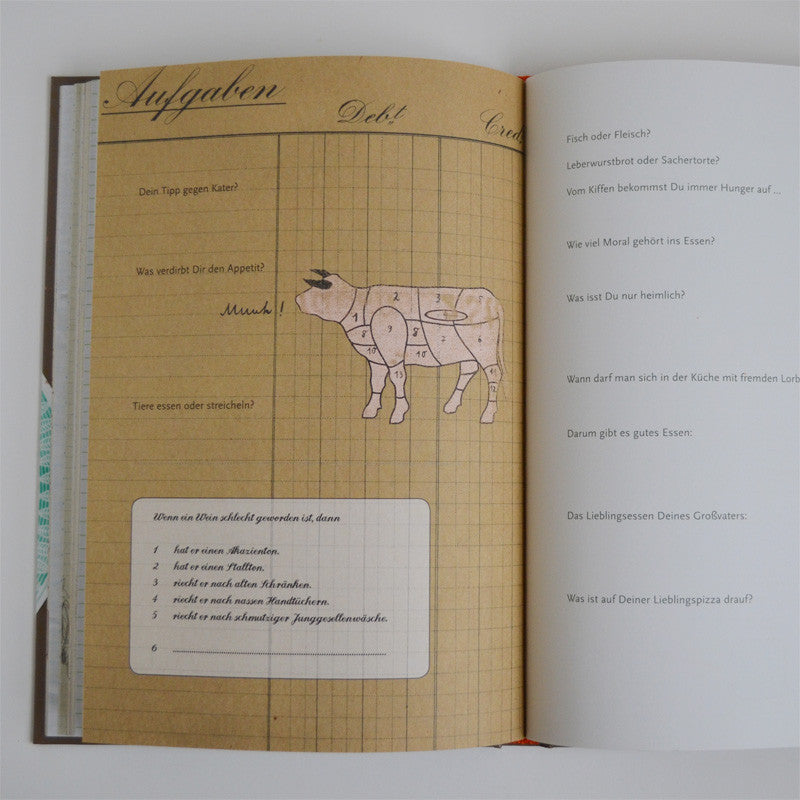 Aufgaben
Debt
Cred.
Dein Tipp gegen Kater?
Was verdirbt Dir den Appetit?
Muuh!
1
2
3
4
5
6
7
8
9
8
10
10
11
12
13
Tiere essen oder streicheln?
Wenn ein Wein schlecht geworden ist, dann
1 hat er einen Akazienton.
2 hat er einen Stallton.
3 riecht er nach alten Schränken.
4 riecht er nach nassen Handtüchern.
5 riecht er nach schmutziger Junggesellenwäsche.
6
Fisch oder Fleisch?
Leberwurstbrot oder Sachertorte?
Vom Kiffen bekommst Du immer Hunger auf ...
Wie viel Moral gehört ins Essen?
Was isst Du nur heimlich?
Wann darf man sich in der Küche mit fremden Lorb
Darum gibt es gutes Essen:
Das Lieblingsessen Deines Großvaters:
Was ist auf Deiner Lieblingspizza drauf?